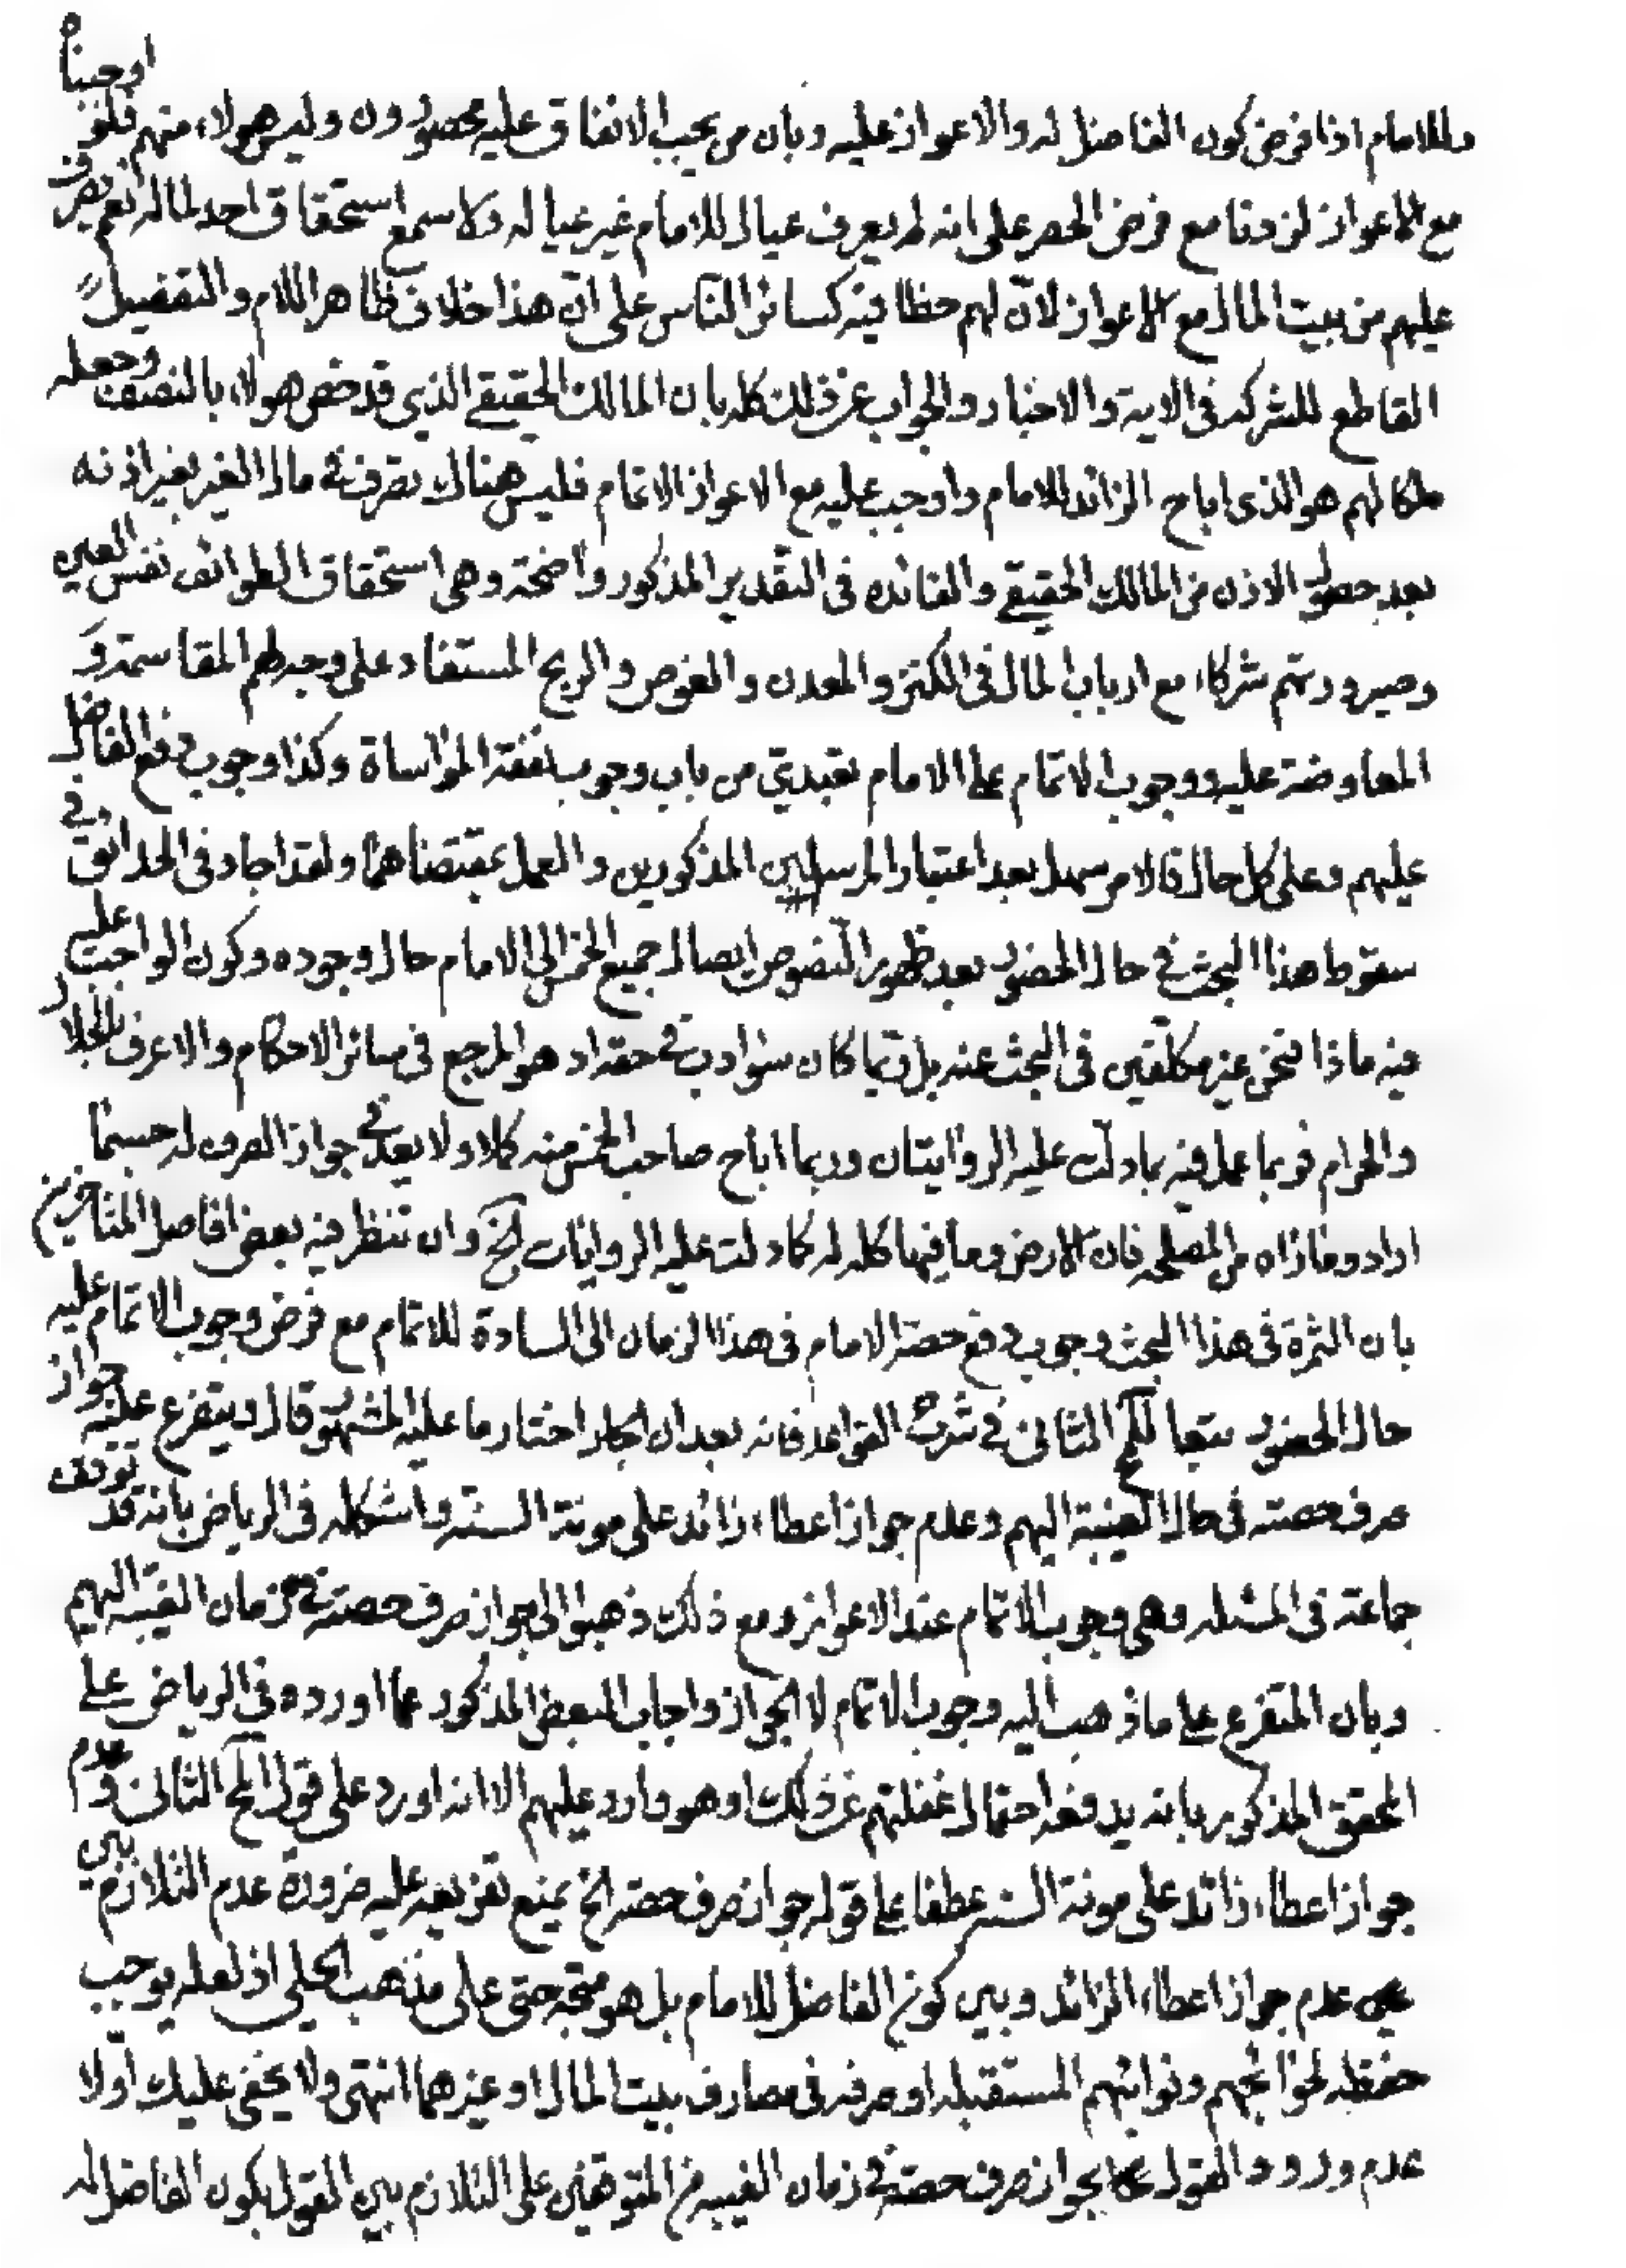 وللامام اذا فرض كون الفاضل له والاعواز عليه وبان من يجب الانفاق عليه محصورون وليس هولاء منهم فلو اوجبناه
مع الاعواز لزوما مع فرض الحصر على انه لم يعرف عيال للامام غير عياله ولا سمع استحقاق احد لماله نعم يصرف
عليهم من بيت المال مع الاعواز لان لهم حظا فيه كسائر الناس على ان هذا خلاف ظاهر اللام والتفضيل
القاطع للشركه فى الايه والاخبار والجواب عن ذلك كله بان المالك الحقيقي الذي قد خص هولاء بالنصف وجعله
ملكا لهم هو الذى اباح الزائد للامام واوجب عليه مع الاعواز الاتمام فليس هناك تصرف في مال الغير بغير اذنه
بعد حصول الاذن من المالك الحقيقي والفائده فى التقدير المذكور واضحة وهى استحقاق الطوائف نفس العين
وصيرورتهم شركاء مع ارباب المال فى الكنز والمعدن والغوص والربح المستفاد على وجه لهم المقاسمة و
المعاوضة عليه ووجوب الاتمام على الامام تعبدي من باب وجوب نفقة المواساة وكذا وجوب دفع الفاضل
عليهم وعلى كل حال فالامر سهل بعد اعتبار المرسلين المذكورين والعمل بمقتضاهما ولقد اجاد فى الحدائق وفي
سقوط هذا البحث في حال الحضور بعد ظهور النصوص ايصال جميع الخمس الى الامام حال وجوده وكون الواجب عليه
فيه ماذا فنحن غير مكلفين فى البحث عنه بل ربما كان سوء ادب في حقه اذ هو المرجع فى سائر الاحكام والاعرف بالحلال
والحرام فربما عمل فيه بما دلت عليه الروايتان وربما اباح صاحب الخمس منه كلا ولا بعد في جواز الصرف له حسبما
اراد وما زاه من المصلحه فان الارض وما فيها كله له كما دلت عليه الروايات الخ وان تنظر فيه بعض افاضل المتاخرين
بان الثمرة فى هذا البحث وجوب دفع حصة الامام فى هذا الزمان الى السادة للاتمام مع فرض وجوب الاتمام عليه
حال الحضور تبعا للمحقق الثانى في شرح القواعد فانه بعد ان اختار ما عليه المشهور قال ويتفرع عليه جواز
صرف حصته فى حال الغيبة اليهم وعدم جواز اعطاء زائد على مونة السنة واشكله فى الرياض بانه قد توقف
جماعة فى المسئله وهى وجوب الاتمام عند الاعواز ومع ذلك ذهبوا الى جواز صرف حصته في زمان الغيبة اليهم
وبان المتفرع على ما ذهب اليه وجوب الاتمام لا الجواز واجاب البعض المذكور عما اورده فى الرياض على
المحقق المذكور بانه يدفعه احتمال غفلتهم عن ذلك او هو وارد عليهم الا انه اورد على قول المحقق الثانى وعدم
جواز اعطاء زائد على مونة السنة عطفا على قوله جواز صرف حصته الخ بمنع تفريعه عليه ضرورة عدم التلازم بين
عدم جواز اعطاء الزائد وبين كون الفاضل للامام بل هو متجه حتى على مذهب الحلي اذ لعله يوجب
حفظه لحوائجهم ونوائبهم المستقبله او صرفه فى مصارف بيت المال او غيرهما انتهى ولا يخفى عليك اولا
عدم ورود القول بجواز صرف حصته في زمان الغيبه من المتوقفين على التلازم بين القول بكون الفاضل له